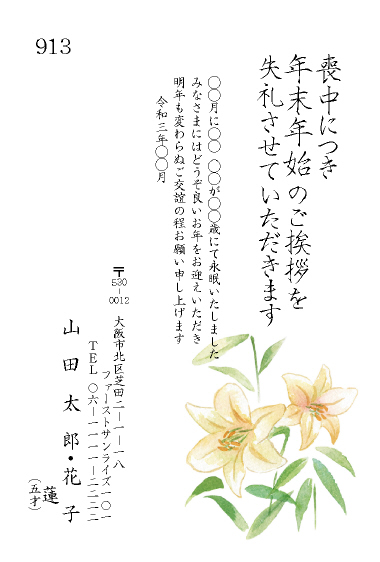 913
喪中につき
年末年始のご挨拶を
失礼させていただきます
〇〇月に〇〇 〇〇が〇〇歳にて永眠いたしました
みなさまにはどうぞ良いお年をお迎えいただき
明年も変わらぬご交誼の程お願い申し上げます
令和三年〇〇月
〒530-0012
大阪市北区芝田二-一-一八
ファーストサンライズ一〇一
TEL 〇六-一一一一-二二二二
山田太郎・花子
蓮
(五才)